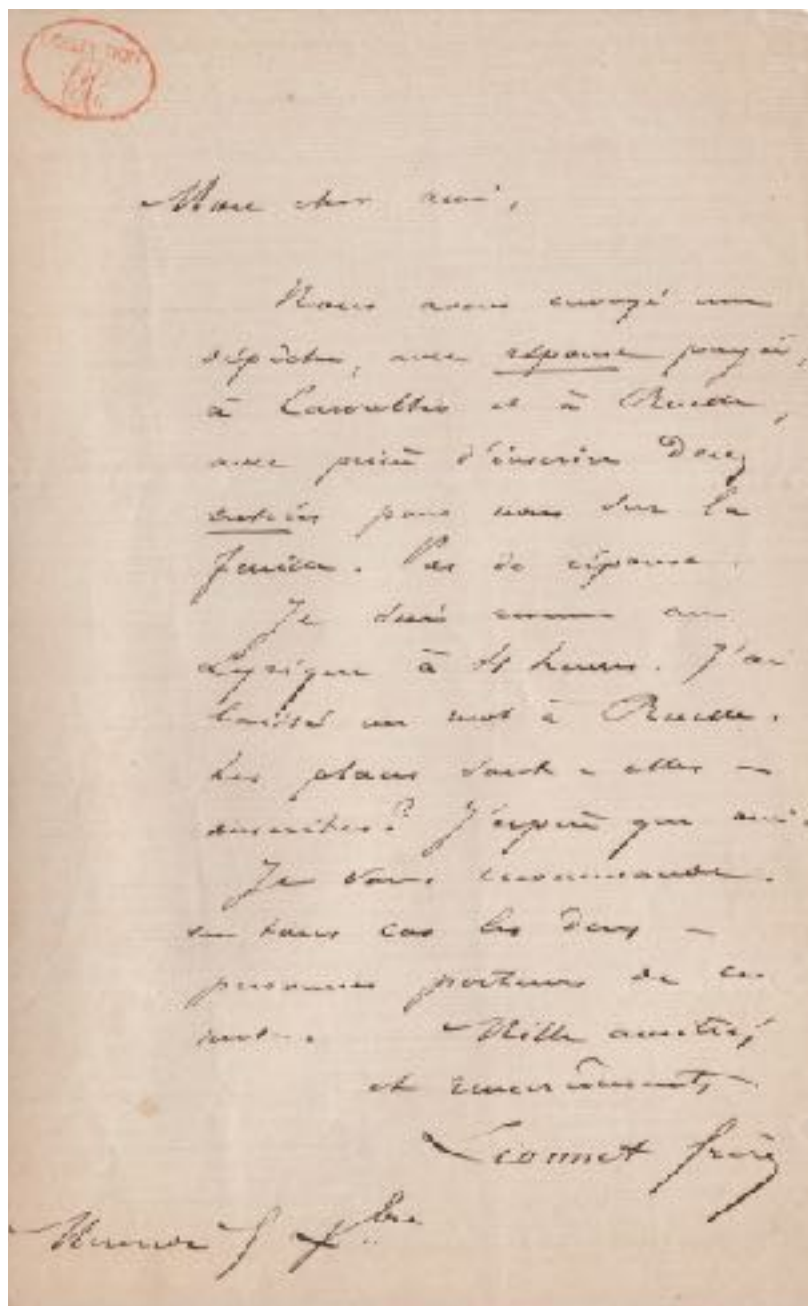 COLLECTION
Mon cher ami,
Nous avons envoyé une
dépêche, avec réponse payée,
à Carvalho et à Ruelle,
avec prière d'inscrire deux
entrées pour nous sur la
feuille. Pas de réponse.
Je suis venu au
Lyrique à 4 heures. J'ai
laissé un mot à Ruelle.
Les places sont-elles
inscrites? J'espère que oui.
Je vous recommande
en tous cas les deux
personnes porteurs de ce
mot. Mille amitiés
et remerciements,
Lionnet frères